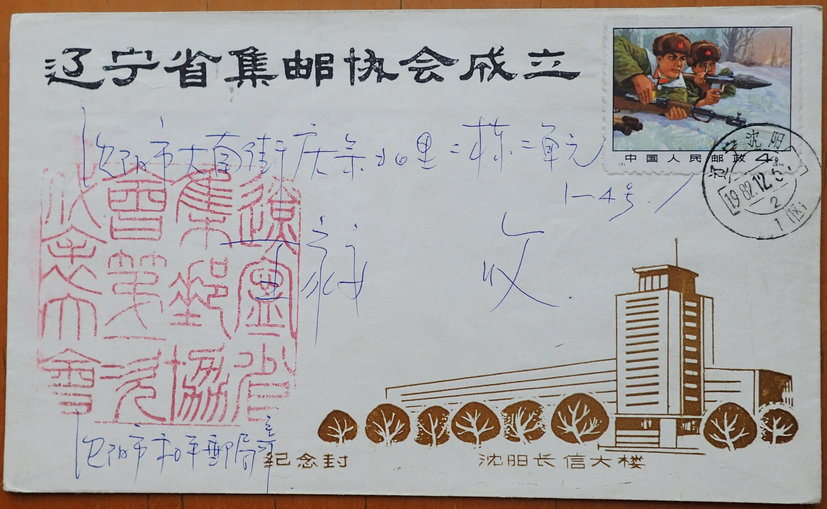 辽宁省集邮协会成立
中国人民邮政 4分
辽宁沈阳
1982.12.5.
2
1(区)
沈阳市大南街庆余北里二栋二单元
1-4号
王 收
遼寧省
集郵協
會第一次
代表大會
沈阳市和平邮局
纪念封 沈阳长信大楼